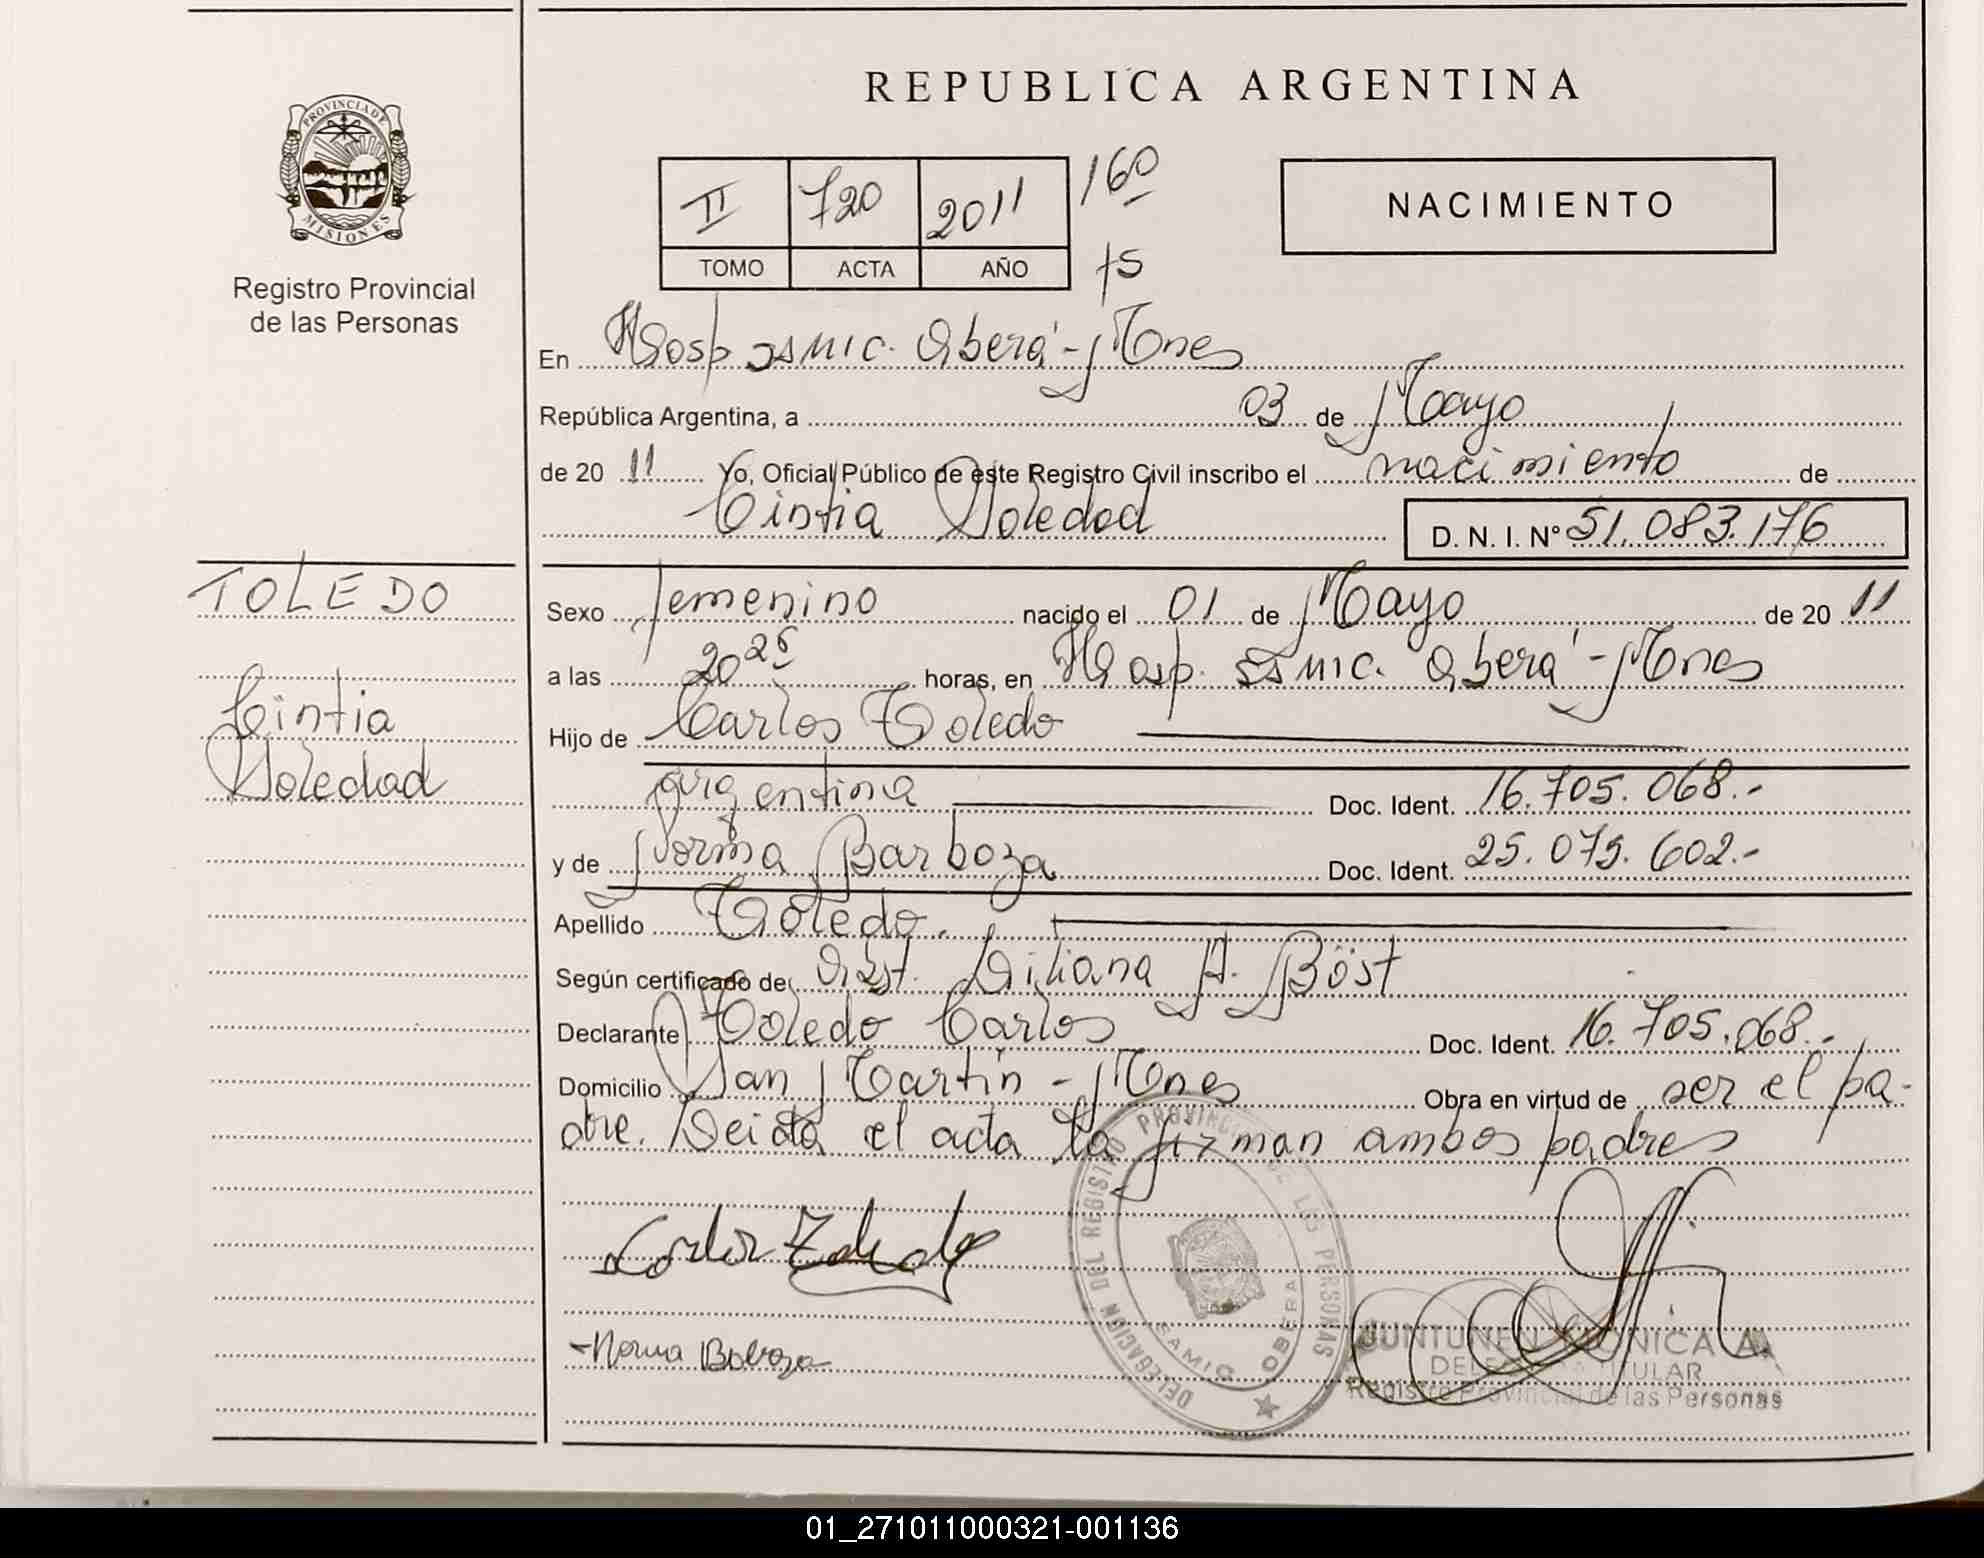 REPUBLICA ARGENTINA
PROVINCIA DE
MISIONES
Registro Provincial
de las Personas
II 720 2011 160
TOMO ACTA AÑO
NACIMIENTO
En Hosp. SAMIC. Oberá - Mnes
República Argentina, a 03 de Mayo
de 20 11 Yo, Oficial Público de este Registro Civil inscribo el nacimiento de
Cintia Soledad D. N. I. Nº 51.083.176
TOLEDO
Cintia
Soledad
Sexo femenino nacido el 01 de Mayo de 20 11
a las 20 25 horas, en Hosp. SAMIC. Oberá - Mnes
Hijo de Carlos Toledo
argentina Doc. Ident. 16.705.068.-
y de Norma Barboza Doc. Ident. 25.075.602.-
Apellido Toledo.
Según certificado de Obst. Liliana A. Böst
Declarante Toledo Carlos Doc. Ident. 16.705.068.-
Domicilio San Martín - Mnes Obra en virtud de ser el pa-
dre. Leida el acta la firman ambos padres
Carlos Toledo
DELEGACION DEL REGISTRO PROVINCIAL DE LAS PERSONAS
SAMIC OBERA
Norma Barboza
JUNTUNEN MONICA A.
DELEGADA TITULAR
Registro Provincial de las Personas
01_271011000321-001136